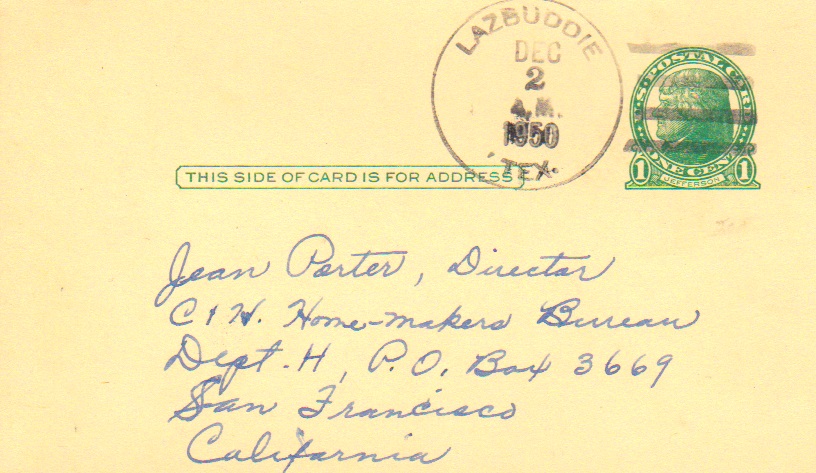 LAZBUDDIE
DEC
2
A.M.
1950
TEX.
U.S. POSTAL CARD
ONE CENT
1 JEFFERSON 1
THIS SIDE OF CARD IS FOR ADDRESS
Jean Porter, Director
C & H. Home-makers Bureau
Dept. H, P.O. Box 3669
San Francisco
California